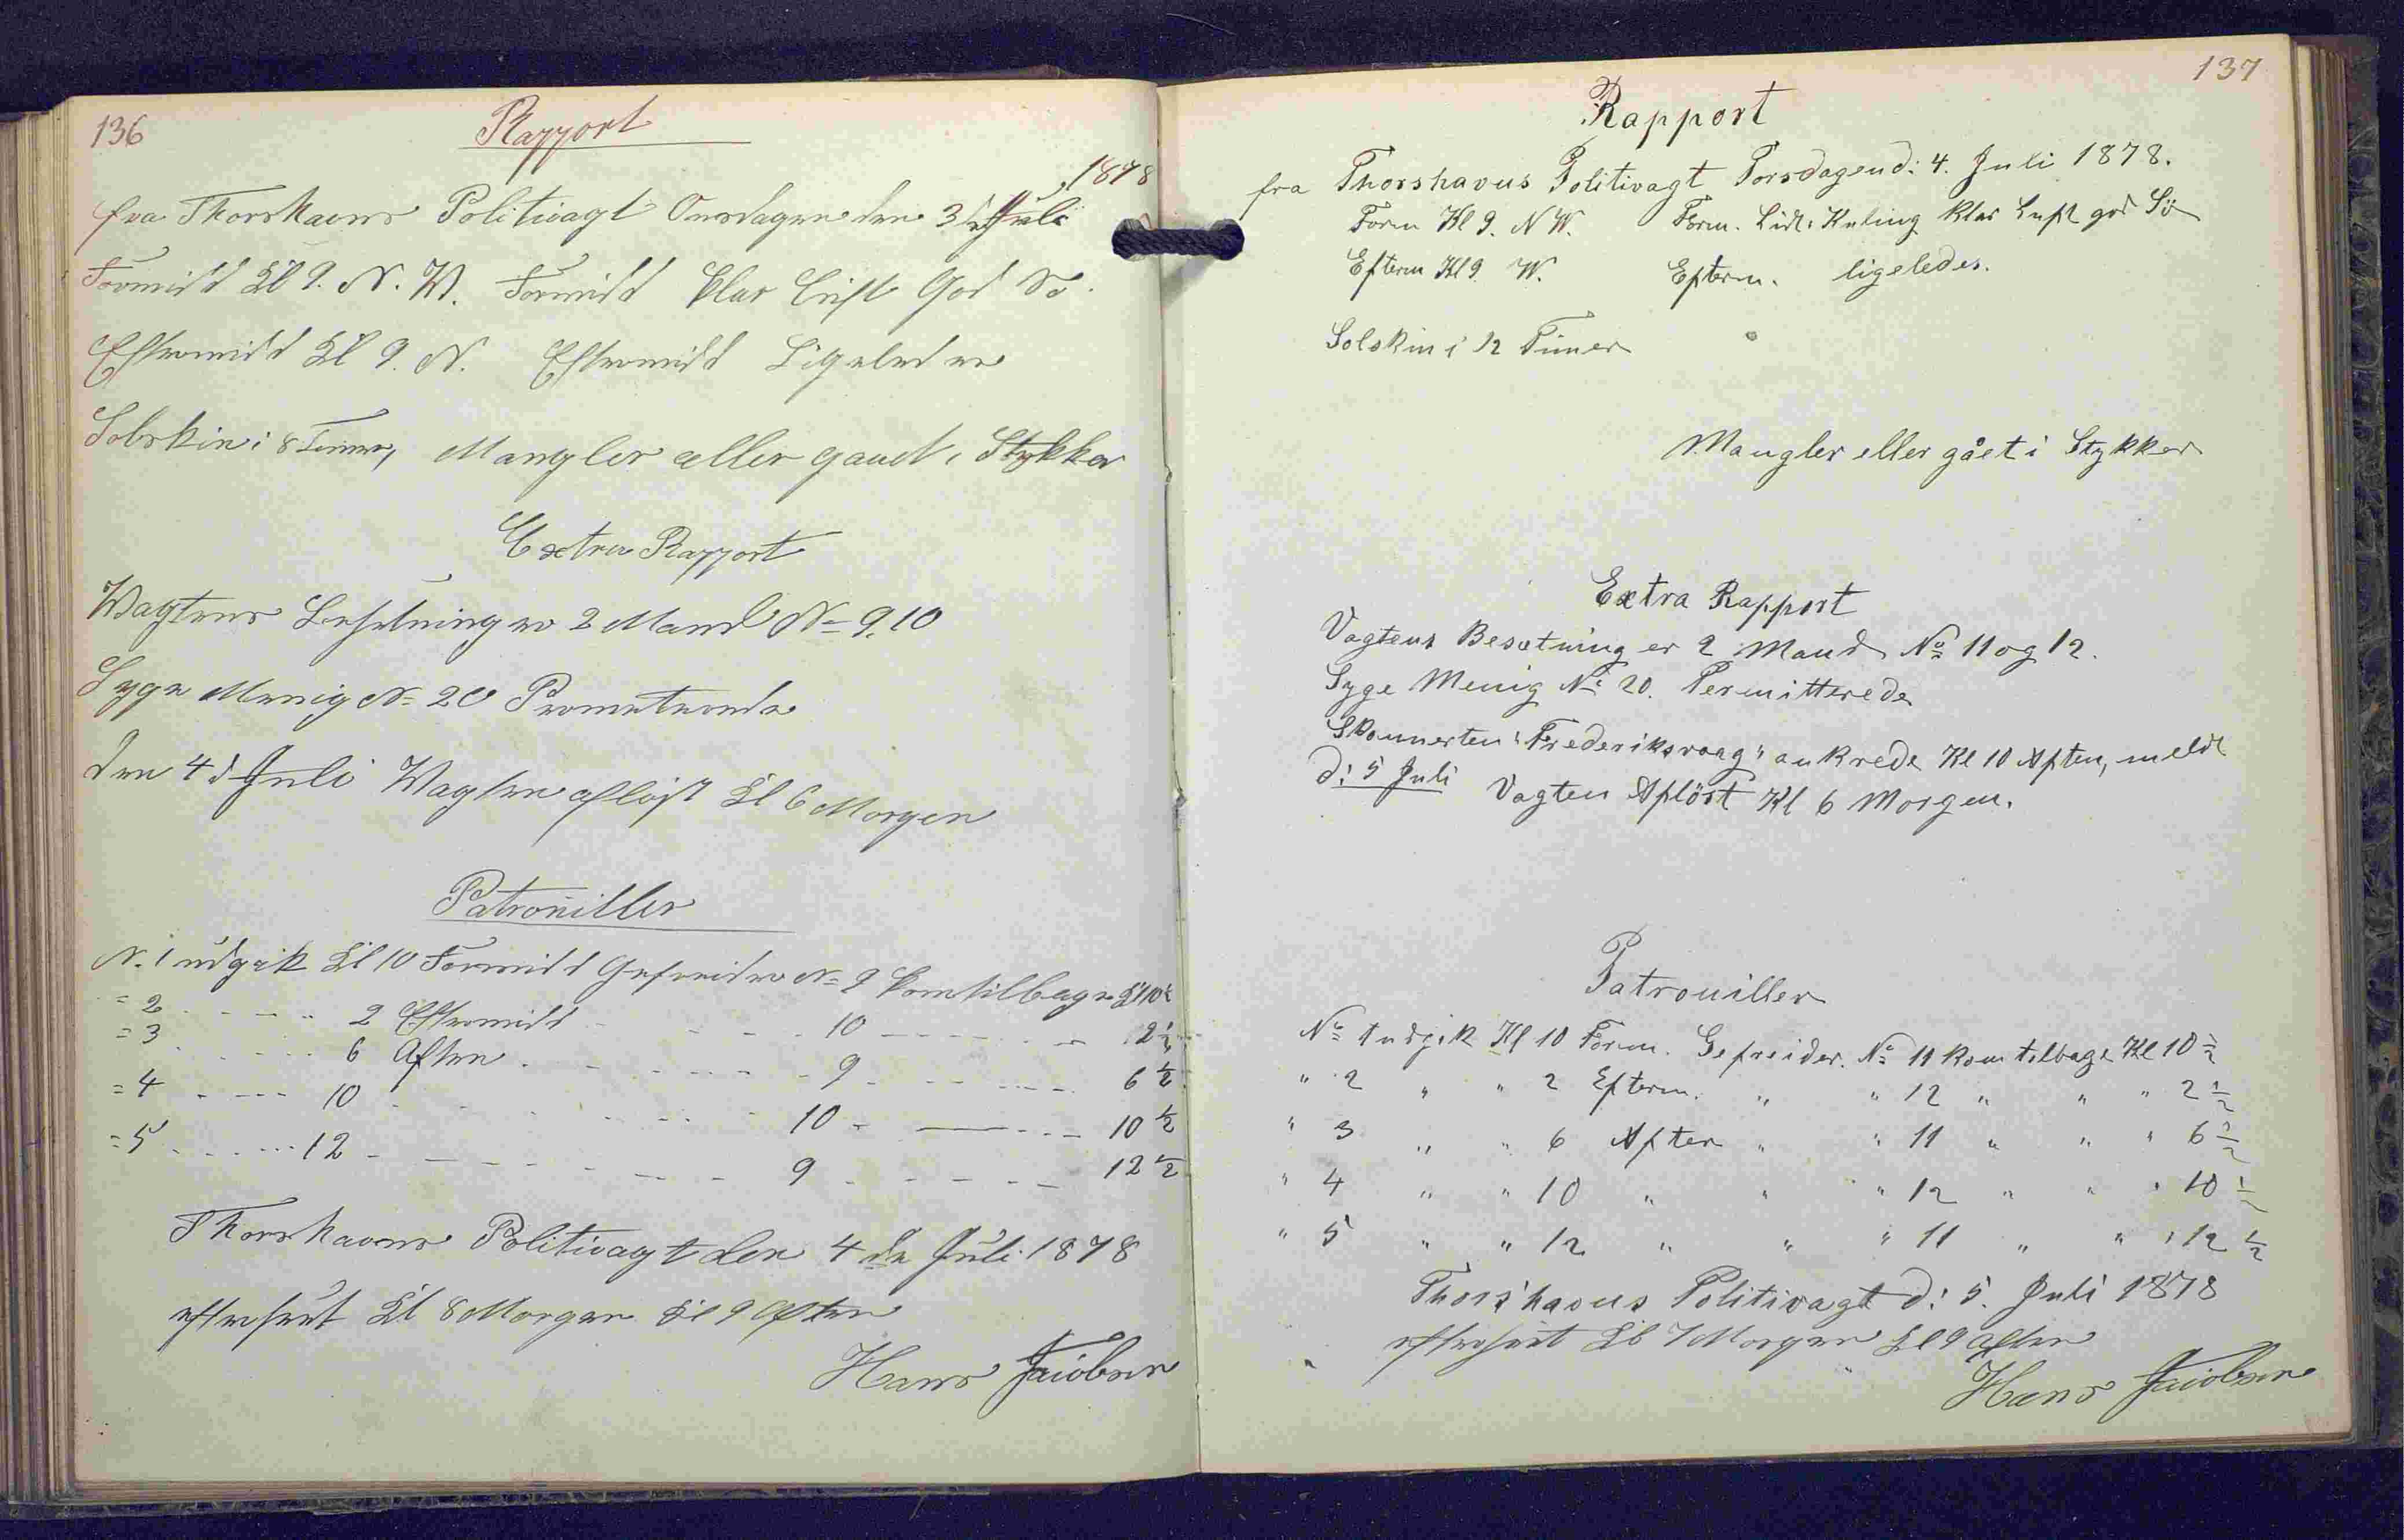 136
Rapport
1878
fra Thorshavns Politivagt Onsdagen den 3de Juli
Formidd Kl 9. N. W. Formidd klar Luft God Sø.
Eftermidd Kl 9. N. Eftermidd Ligeledes
Solskin i 8 Timer, Mangler eller gaaet i Stykker
Extra Rapport
Wagtens Besetning er 2 Mand No 9. 10
Syge Menig No 20
den 4d Juli Wagten afløst Kl 6 Morgen
Patrouiller
N. 1 udgik Kl 10 Formidd Gefreider No 9 kom tilbage Kl 10½
= 2 - - - - 2 Eftermidd - - - - 10 - - - - - 2½
= 3 - - - - 6 Aften - - - - - 9 - - - - - 6½
= 4 - - - - 10 - - - - - 10 - - - - - 10½
= 5 - - - - 12 - - - - - - 9 - - - - - 12½
Thorshavns Politivagt den 4de Juli 1878
efterseet Kl 8 Morgen Kl 9 Aften
Hans Jacobsen
137
Rapport
fra Thorshavns Politivagt Torsdagen d: 4. Juli 1878.
Form Kl 9. N W. Form. Lidt Kuling klar Luft god Sö
Efterm Kl 9. W. Efterm. ligeledes.
Solskin i 12 Timer
Mangler eller gået i Stykker
Extra Rapport
Vagtens Besætning er 2 Mand No 11 og 12.
Syge Menig No 20. Permitterede
Skonnerten "Frederiksvaag" ankrede Kl 10 Aften, meldt
d: 5 Juli Vagten Aflöst Kl 6 Morgen.
Patrouiller
No 1 udgik Kl 10 Form. Gefreider. No 11 kom tilbage Kl 10½
" 2 " " 2 Efterm. " " 12 " " " 2½
" 3 " " 6 Aften " " 11 " " " 6½
" 4 " " 10 " " " 12 " " " 10½
" 5 " " 12 " " " 11 " " " 12½
Thorshavns Politivagt d: 5. Juli 1878
efterseet Kl 7 Morgen Kl 9 Aften
Hans Jacobsen